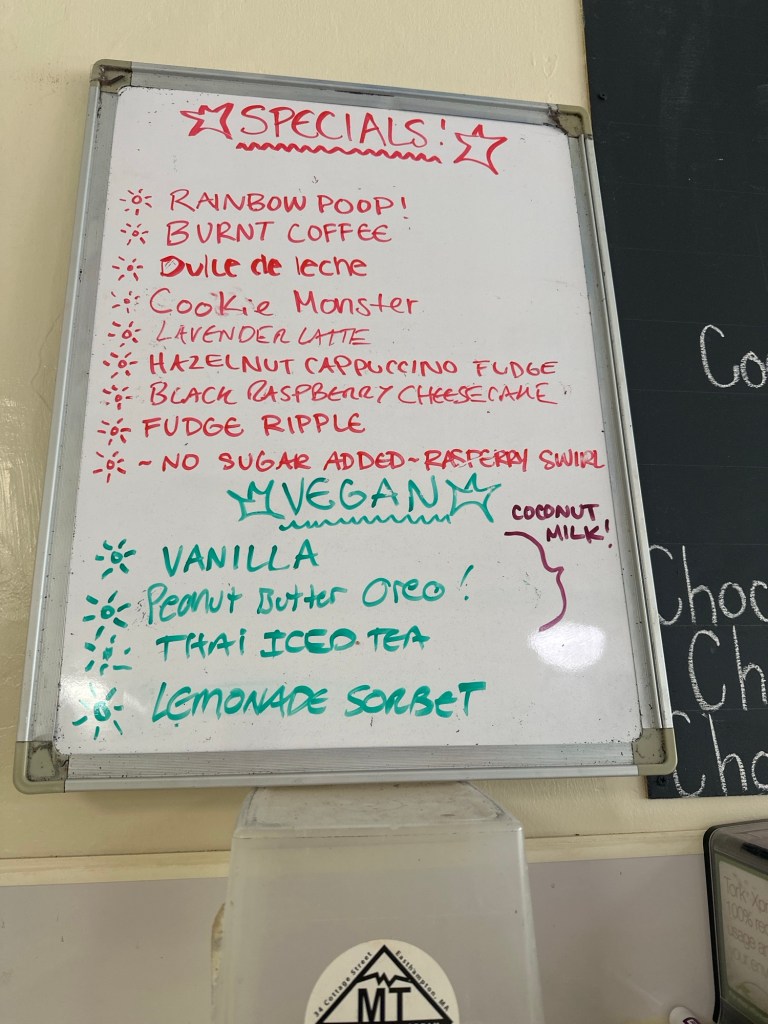 SPECIALS!
RAINBOW POOP!
BURNT COFFEE
Dulce de leche
Cookie Monster
LAVENDER LATTE
HAZELNUT CAPPUCCINO FUDGE
BLACK RASPBERRY CHEESECAKE
FUDGE RIPPLE
~NO SUGAR ADDED~RASPERRY SWIRL
VEGAN
COCONUT
MILK!
VANILLA
Peanut Butter Oreo!
THAI ICED TEA
LEMONADE SORBET
Co
Choc
Ch
Cho
34 Cottage Street Easthampton, MA
MT
Tork Xp
100% rec
usage a
your env